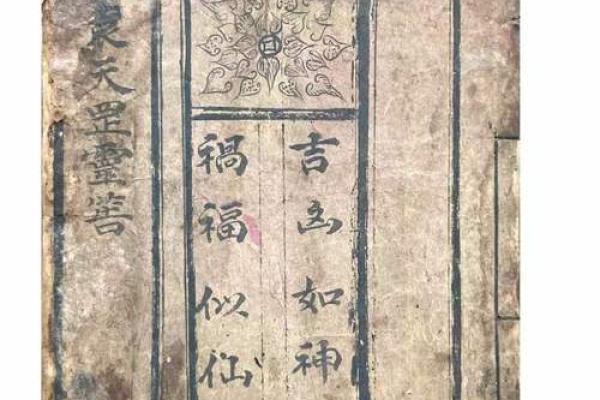 吉凶如神
禍福似仙
袁天罡靈筶